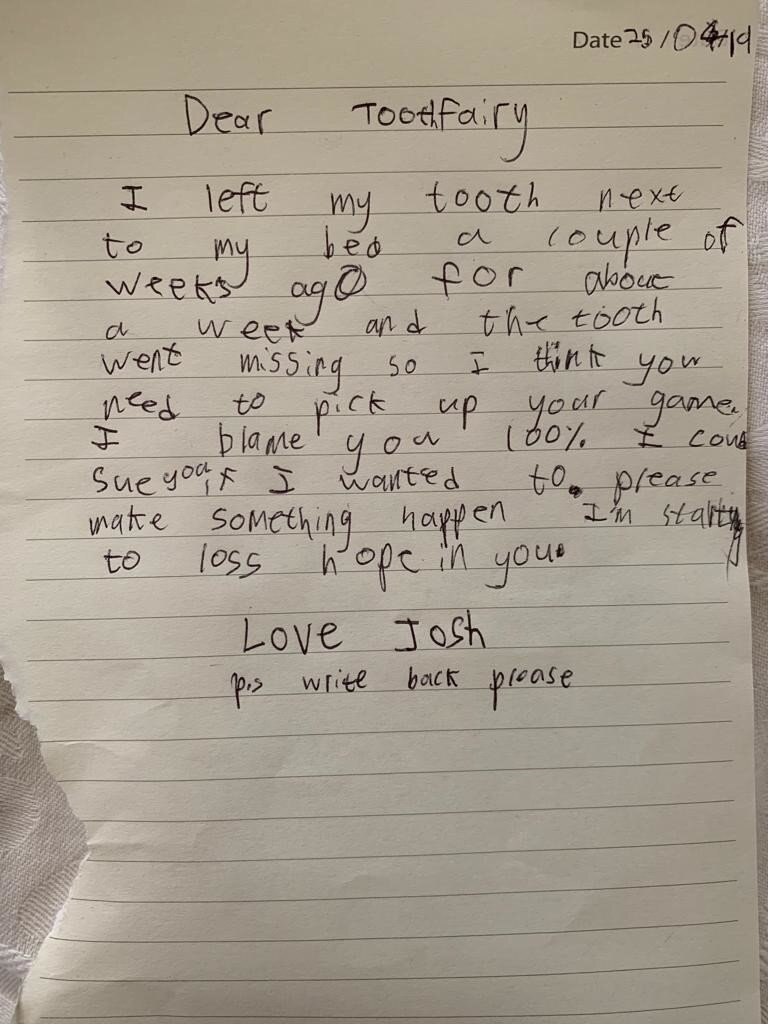 Date 25/04/19
Dear Toothfairy
I left my tooth next
to my bed a couple of
weeks ago for about
a week and the tooth
went missing so I think you
need to pick up your game.
I blame you 100% I coud
sue you if I wanted to. please
make something happen I'm starting
to loss hope in you.
Love Josh
p.s write back please